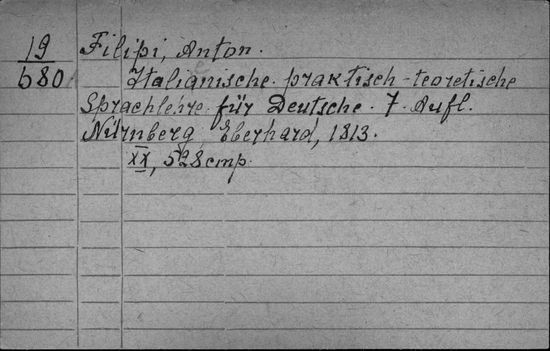 19 Filipi, Anton.
580 Italianische praktisch-teoretische
Sprachlehre für Deutsche. 7. Aufl.
Nürnberg, Eberhard, 1813.
XX, 528 стр.